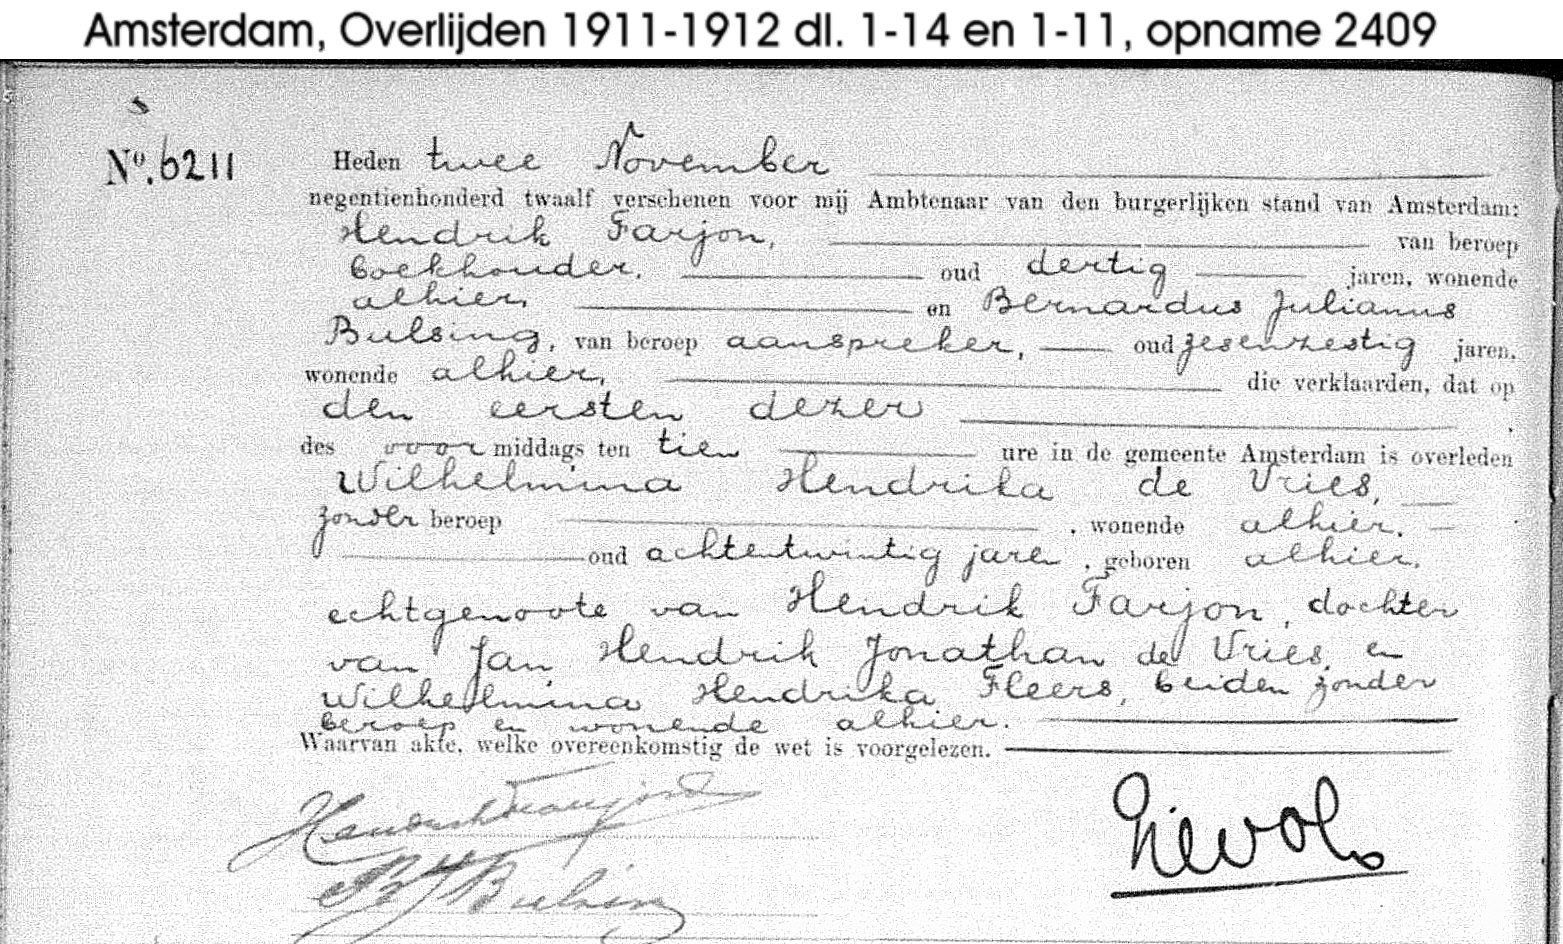 Amsterdam, Overlijden 1911-1912 dl. 1-14 en 1-11, opname 2409
No. 6211 Heden twee November
negentienhonderd twaalf verschenen voor mij Ambtenaar van den burgerlijken stand van Amsterdam:
Hendrik Farjon, van beroep
boekhouder, oud dertig jaren, wonende
alhier, en Bernardus Julianus
Bulsing, van beroep aanspreker, oud zesenzestig jaren,
wonende alhier, die verklaarden, dat op
den eersten dezer
des voormiddags ten tien ure in de gemeente Amsterdam is overleden
Wilhelmina Hendrika de Vries,
zonder beroep , wonende alhier,
oud achtentwintig jaren , geboren alhier,
echtgenoote van Hendrik Farjon, dochter
van Jan Hendrik Jonathan de Vries, en
Wilhelmina Hendrika Fleers, beiden zonder
beroep en wonende alhier.
Waarvan akte, welke overeenkomstig de wet is voorgelezen.
Hendrik Farjon
BJ Bulsing